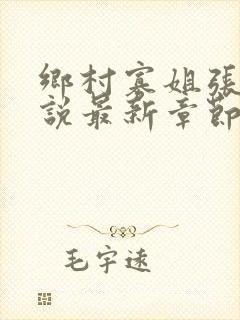 鄉村寡姐張
說最新章節
毛宇遠